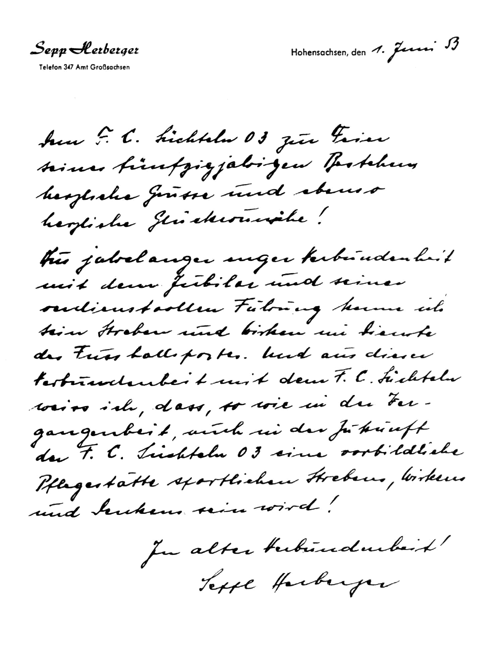 Sepp Herberger
Telefon 347 Amt Großsachsen
Hohensachsen, den 1. Juni 53
Dem F. C. Süchteln 03 zur Feier
seines fünfzigjährigen Bestehens
herzliche Grüsse und ebenso
herzliche Glückwünsche!
Aus jahrelanger enger Verbundenheit
mit dem Jubilar und seiner
verdienstvollen Führung kenne ich
sein Streben und Wirken im Dienste
des Fussballsportes. Und aus dieser
Verbundenheit mit dem F. C. Süchteln
weiss ich, dass, so wie in der Ver-
gangenheit, auch in der Zukunft
der F. C. Süchteln 03 eine vorbildliche
Pflegestätte sportlichen Strebens, Wirkens
und Denkens sein wird!
In alter Verbundenheit!
Seppl Herberger